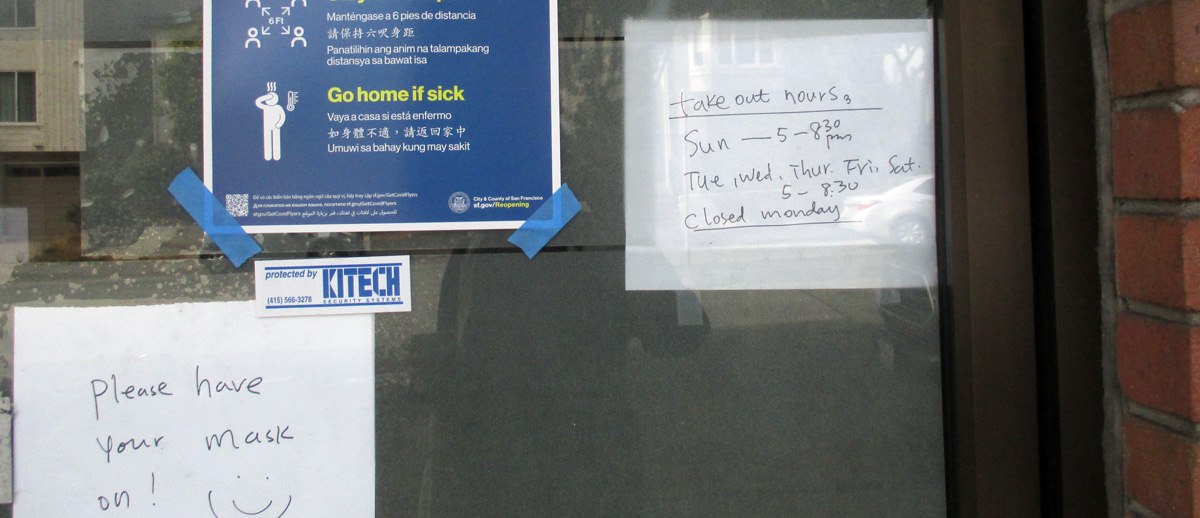 6 Ft
Manténgase a 6 pies de distancia
請保持六呎身距
Panatilihin ang anim na talampakang
distansya sa bawat isa
Go home if sick
Vaya a casa si está enfermo
如身體不適，請返回家中
Umuwi sa bahay kung may sakit
City & County of San Francisco
sf.gov/Reopening
protected by KITECH
(415) 566-3278 SECURITY SYSTEMS
take out hours
Sun — 5 - 8:30 pm
Tue, Wed, Thur. Fri, Sat.
5 - 8:30
Closed monday
Please have
your mask
on!